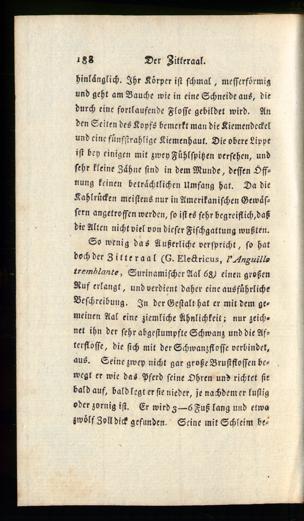 188 Der Zitteraal.
hinlänglich. Ihr Körper ist schmal, messerförmig
und geht am Bauche wie in eine Schneide aus, die
durch eine fortlaufende Flosse gebildet wird. An
den Seiten des Kopfs bemerkt man die Kiemendeckel
und eine fünfstrahlige Kiemenhaut. Die obere Lippe
ist bey einigen mit zwey Fühlspitzen versehen, und
sehr kleine Zähne sind in dem Munde, dessen Oeff-
nung keinen beträchtlichen Umfang hat. Da die
Kahlrücken meistens nur in Amerikanischen Gewäs-
sern angetroffen werden, so ist es sehr begreiflich, daß
die Alten nicht viel von dieser Fischgattung wußten.
So wenig das Äußerliche verspricht, so hat
doch der Zitteraal (G. Electricus, l'Anguille
tremblante, Surinamischer Aal 68) einen großen
Ruf erlangt, und verdient daher eine ausführliche
Beschreibung. In der Gestalt hat er mit dem ge-
meinen Aal eine ziemliche Ähnlichkeit; nur zeich-
net ihn der sehr abgestumpfte Schwanz und die Af-
terflosse, die sich mit der Schwanzflosse verbindet,
aus. Seine zwey nicht gar große Brustflossen be-
wegt er wie das Pferd seine Ohren und richtet sie
bald auf, bald legt er sie nieder, je nachdem er lustig
oder zornig ist. Er wird 3—6 Fuß lang und etwa
zwölf Zoll dick gefunden. Seine mit Schleim be-